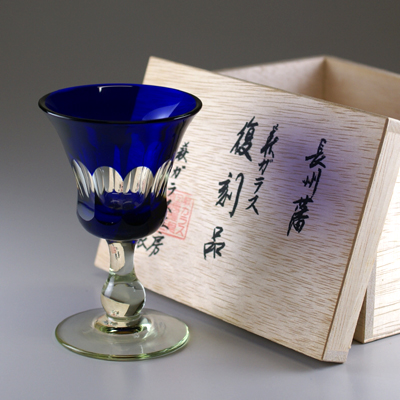 長州藩
萩ガラス
復刻品
萩ガラス工房